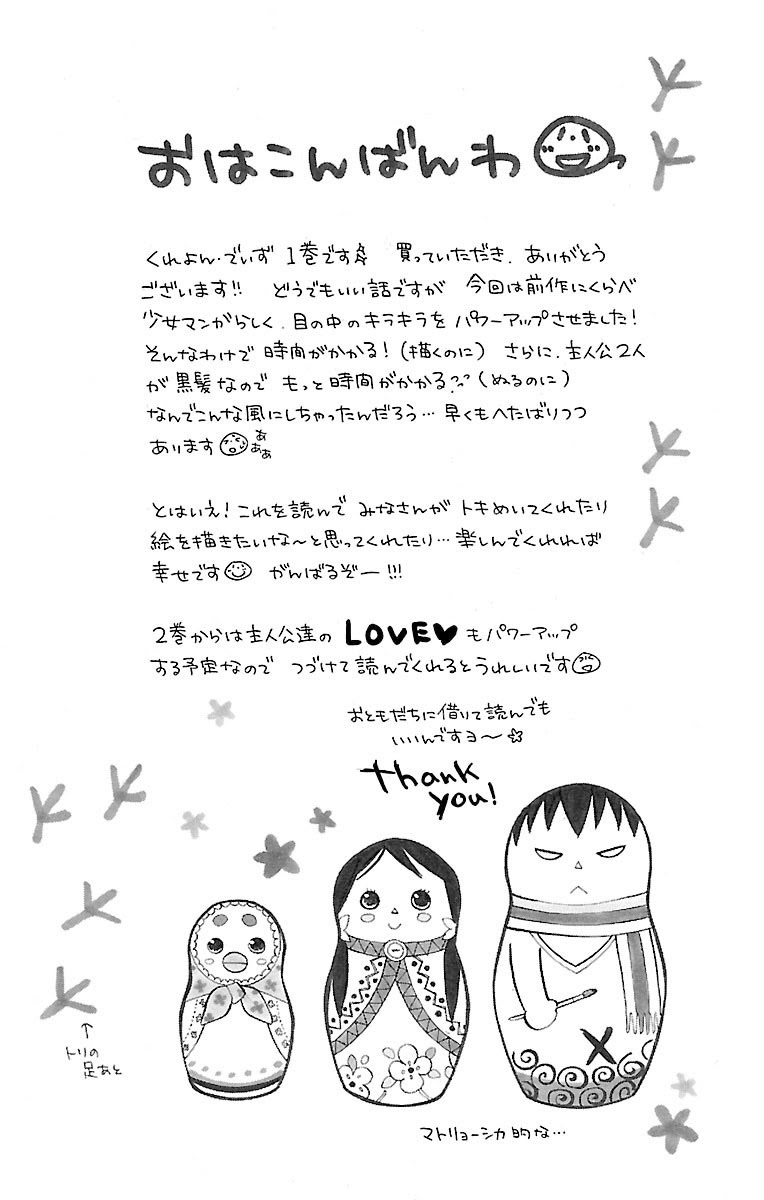 おはこんばんわ
くれよん・でいず 1巻です☆ 買っていただき、ありがとう
ございます!! どうでもいい話ですが 今回は前作にくらべ
少女マンがらしく、目の中のキラキラを パワーアップさせました!
そんなわけで 時間がかかる!(描くのに) さらに、主人公2人
が黒髪なので もっと時間がかかる??(ぬるのに)
なんでこんな風にしちゃったんだろう… 早くもへたばりつつ
あります あああ
とはいえ! これを読んで みなさんが トキめいてくれたり
絵を描きたいな〜と思ってくれたり… 楽しんでくれれば
幸せです がんばるぞー!!!
2巻からは主人公達の LOVE♥ もパワーアップ
する予定なので つづけて読んでくれるとうれしいです
おともだちに借りて読んでも
いいんですヨ〜☆
thank
you!
↑
トリの
足あと
マトリョーシカ的な…